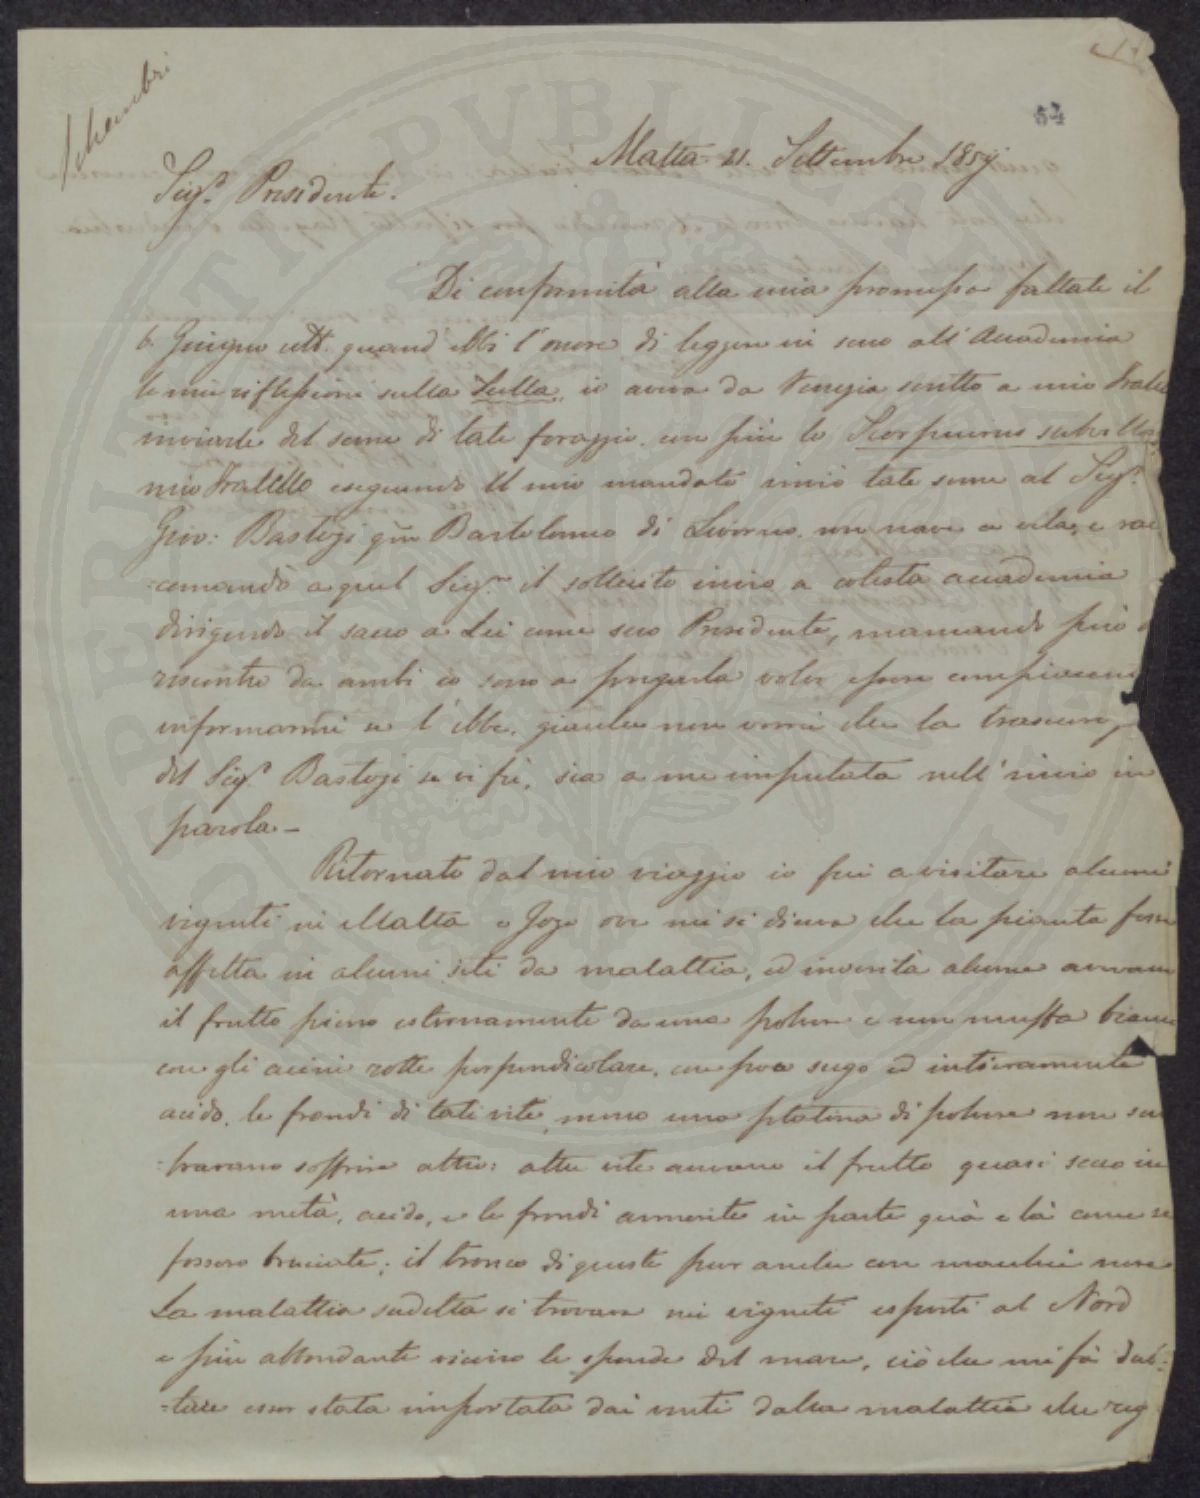 Schembri
54
Malta 21. Settembre 185
Sigr. Presidente.
Di conformità alla mia promessa fattale il
6. Giugno ult. quand' ebbi l'onore di leggere in seno all' Accademia
le mie riflessioni sulla Sulla, io aveva da Venezia scritto a mio Fratello
inviarle del seme di tale foraggio. con più lo Scorpiurus subvillo
mio Fratello eseguendo il mio mandato inviò tale seme al Sigr.
Giov: Bastogi qm Bartolomeo di Livorno. con nave a vela, e rac
=comandò a quel Sigr. il sollecito invio a cotesta accademia
dirigendo il sacco a Lei come suo Presidente, mancando però
riscontro da ambi io sono a pregarla voler essere compiacente
informarmi se l'ebbe, giacche non vorrei che la trascura
del Sigr. Bastogi se vi fù, sia a me imputata nell' invio in
parola.-
Ritornato dal mio viaggio io fui a visitare alcuni
vigneti in Malta e Gozo ove mi si diceva che la pianta fosse
affetta in alcuni siti da malattia, ed in verità alcune avevano
il frutto pieno esternamente da una polvere e con muffa bianca
con gli acini rotti perpendicolare, con poco sugo ed intieramente
acido. le frondi di tali vite, meno una platina di polvere non sem
=bravano soffrire altro: altre vite avevano il frutto quasi secco in
una metà, acido, e le frondi annerite in parte quà e là come se
fossero bruciate; il tronco di queste pur anche con macchie nere
La malattia sudetta si trovava nei vigneti esposti al Nord
e più abbondante vicino le sponde del mare, ciò che mi fà dub=
=tare esser stata importata dai venti dalla malattia che reg